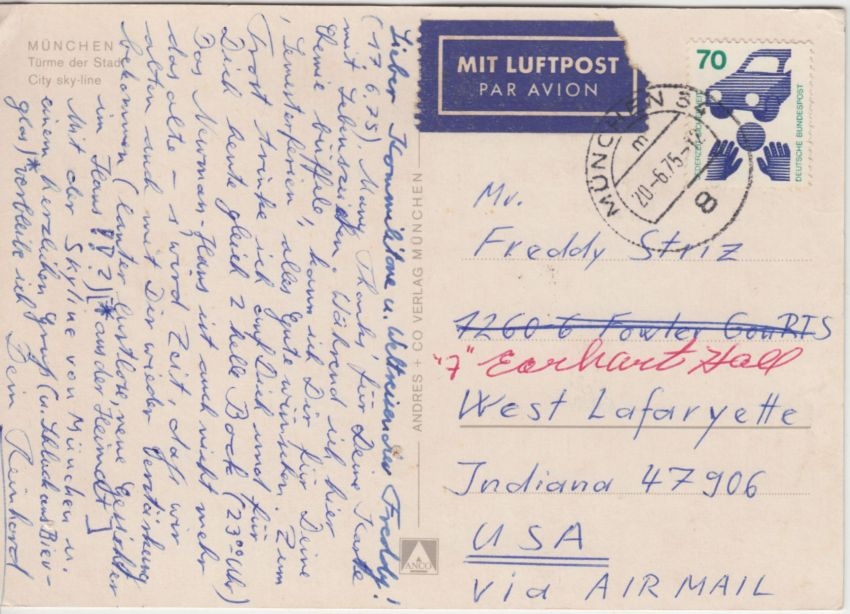 MÜNCHEN
Türme der Stadt
City sky-line
Lieber Kommilitone u. Weltreisender Freddy!
(17.6.75) Many Thanks, für Deine Karte
mit Lebenszeichen. Während ich hier
Chemie büffele, kann ich Dir für Deine
Semesterferien alles Gute wünschen. Zum
Trost trinke ich auf Dich und für
Dich heute gleich 2 helle Bock (23⁰⁰ Uhr)
Das Newman-Haus ist auch nicht mehr
das alte – s'wird Zeit, daß wir
alten auch mit Dir wieder Verstärkung
bekommen (lauter lustlose, neue Gesichter
im Haus !? ?) [* aus der Heimat]
Mit der Skyline von München u.
einem herzlichen Gruß (u. Schluck aus Bier-
glas)* verbleibe ich
Dein Reinhard
ANDRES + CO VERLAG MÜNCHEN
ANCO
MIT LUFTPOST
PAR AVION
70
JEDERZEIT SICHERHEIT
DEUTSCHE BUNDESPOST
MÜNCHEN
20.-6.75
8
Mr.
Freddy Striz
1260-6 Fowler CouRTS
"7" Earhart Hall
West Lafaryette
Indiana 47906
USA
via AIR MAIL